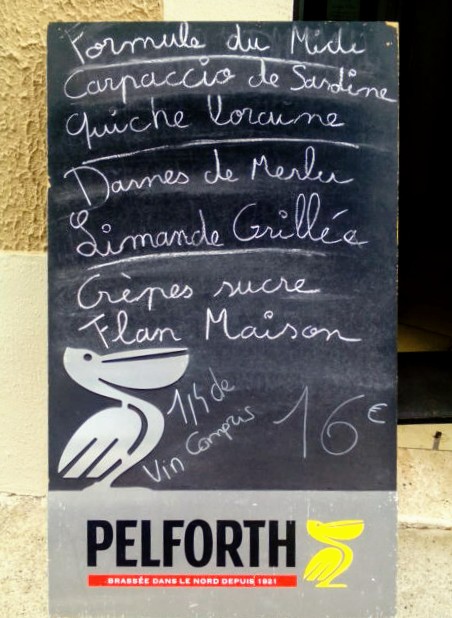 Formule du Midi
Carpaccio de Sardine
Quiche Loraine
Darnes de Merlu
Limande Grillée
Crèpes sucre
Flan Maison
1/4 de
Vin Compris
16€
PELFORTH
BRASSÉE DANS LE NORD DEPUIS 1921